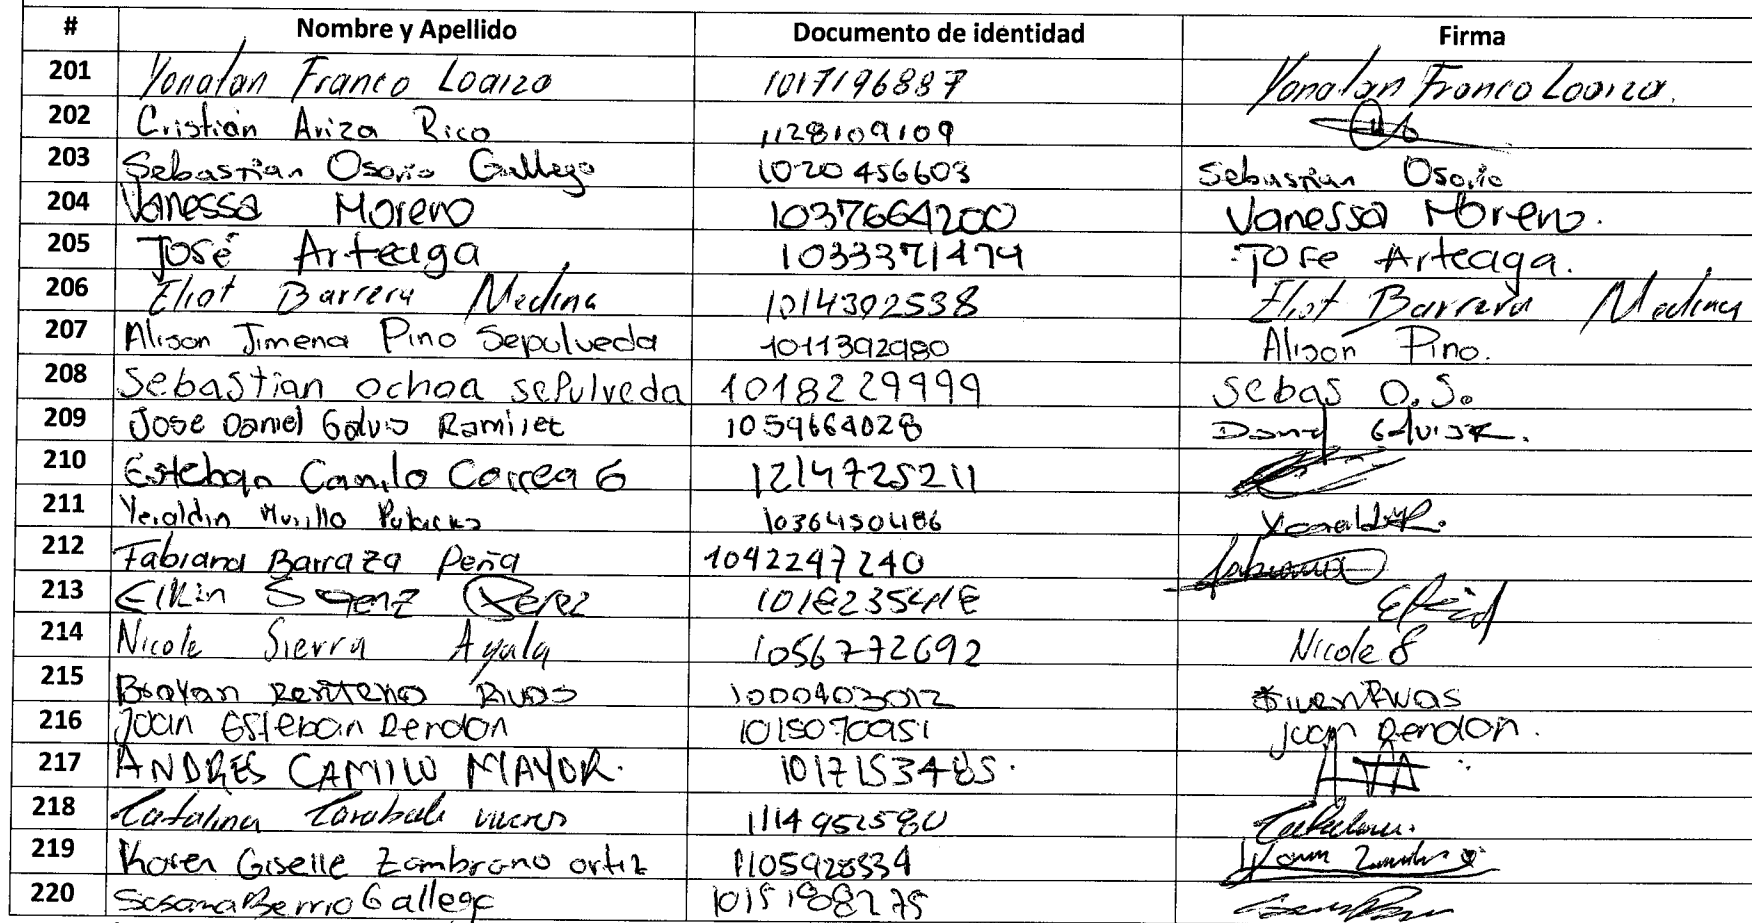 # Nombre y Apellido Documento de identidad Firma
201 Yonatan Franco Loaiza 1017196887 Yonatan Franco Loaiza.
202 Cristian Ariza Rico 1128109109
203 Sebastian Osorio Gallego 1020456603 Sebastian Osorio
204 Vanessa Moreno 1037664200 Vanessa Moreno.
205 José Arteaga 1033371474 Jose Arteaga.
206 Eliot Barrera Medina 1014302538 Eliot Barrera Medina
207 Alison Jimena Pino Sepulveda 1011392980 Alison Pino.
208 Sebastian ochoa sepulveda 1018229999 Sebas O.S.
209 Jose Daniel Galvis Ramirez 1059664028
210 Esteban Camilo Correa G 1214725211
211 Yeraldin Murillo Palacios 1036450486
212 Fabiana Barraza Peña 1042247240
213 Elkin Perez
214 Nicole Sierra Ayala 1056772692 Nicole S
215 Brayan Renteria Rivas 1000403012
216 Juan Esteban Rendon 1015070951 juan Rendon.
217 ANDRES CAMILO MAYOR. 1017153485.
218 Catalina Carabali 1114952580
219 Karen Giselle Zambrano ortiz 1105928534
220 Susana Berrio Gallego 1015188275